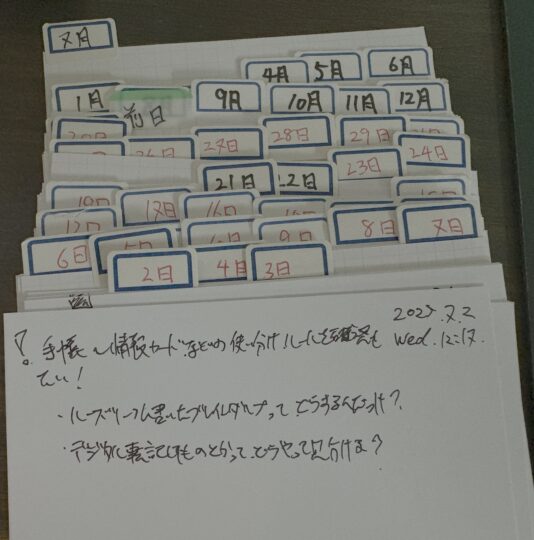 7月
4月 5月 6月
1月 9月 10月 11月 12月
前日
26日 27日 28日 29日
23日 24日
21日 22日
17日 16日
6日 5日 9日 8日 7日
2日 4日 3日
2025.7.2
手帳〜情報カードなどの使い分けルールを Wed. 12:17.
たい!
・ルーズリーフに書いたブレインダンプって、どうするんだっけ?
・デジタルに転記したものとかって、どうやって見分ける?